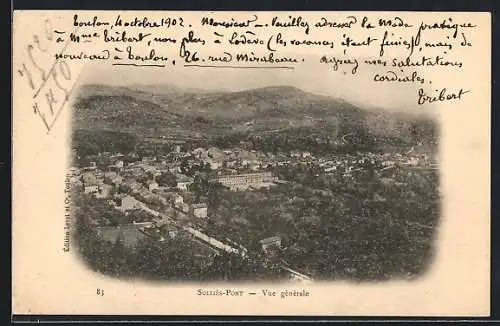 Toulon, 4 octobre 1902. Monsieur — Veuillez adresser la Mode pratique
à Mme Tribert, non plus à Lodève (les vacances étant finies), mais de
nouveau à Toulon, 26, rue Mirabeau. Agréez mes salutations
cordiales.
Tribert
Édition Levat et Cie, Toulon
83 SOLLIÈS-PONT — Vue générale